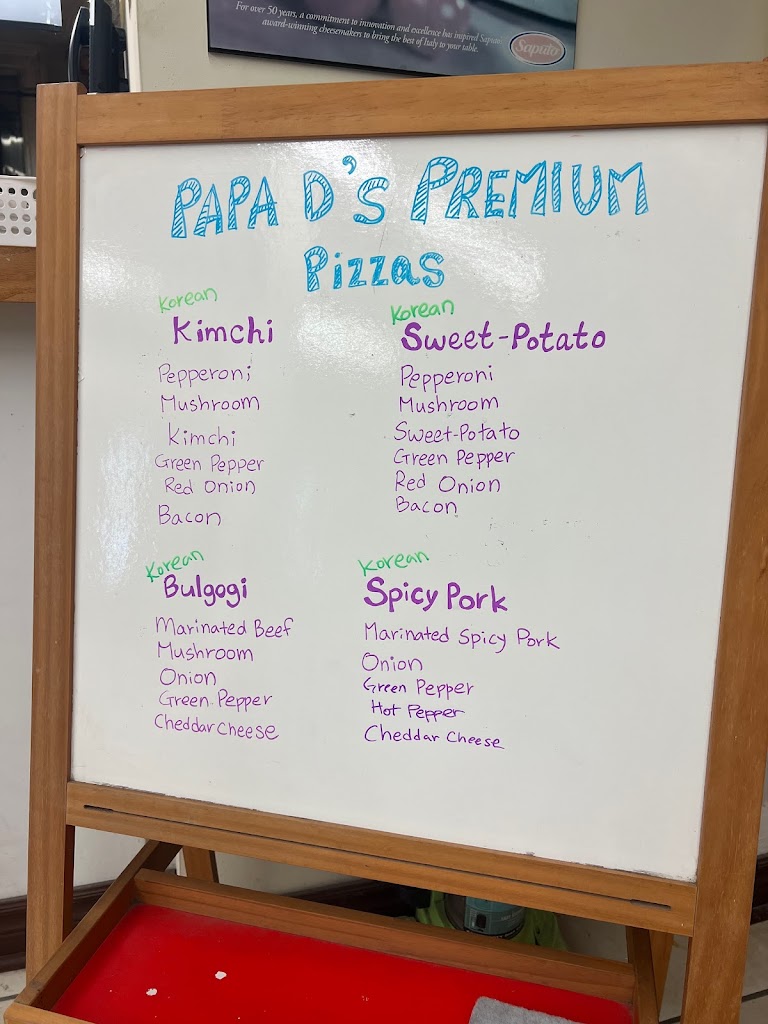 For over 50 years, a commitment to innovation and excellence has inspired Saputo
award-winning cheesemakers to bring the best of Italy to your table.
Saputo
PAPA D's PREMIUM
Pizzas
Korean
Kimchi
Pepperoni
Mushroom
Kimchi
Green Pepper
Red Onion
Bacon
Korean
Sweet-Potato
Pepperoni
Mushroom
Sweet-Potato
Green Pepper
Red Onion
Bacon
Korean
Bulgogi
Marinated Beef
Mushroom
Onion
Green Pepper
Cheddar Cheese
Korean
Spicy Pork
Marinated Spicy Pork
Onion
Green Pepper
Hot Pepper
Cheddar Cheese